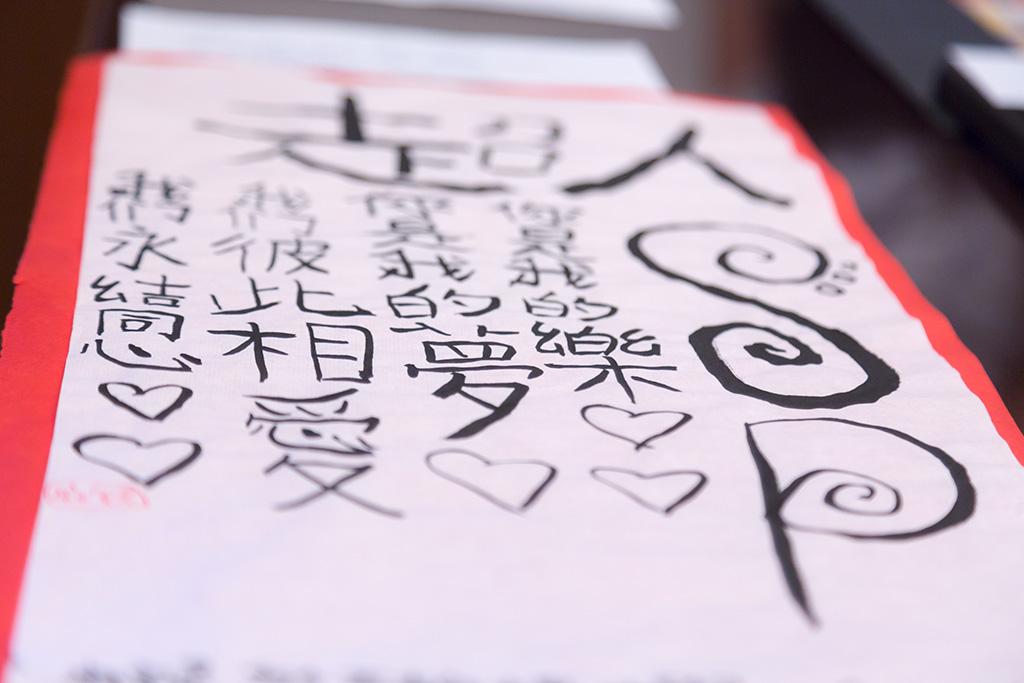 超人
你是我的樂
你是我的夢
我們彼此相愛
我們永結同心